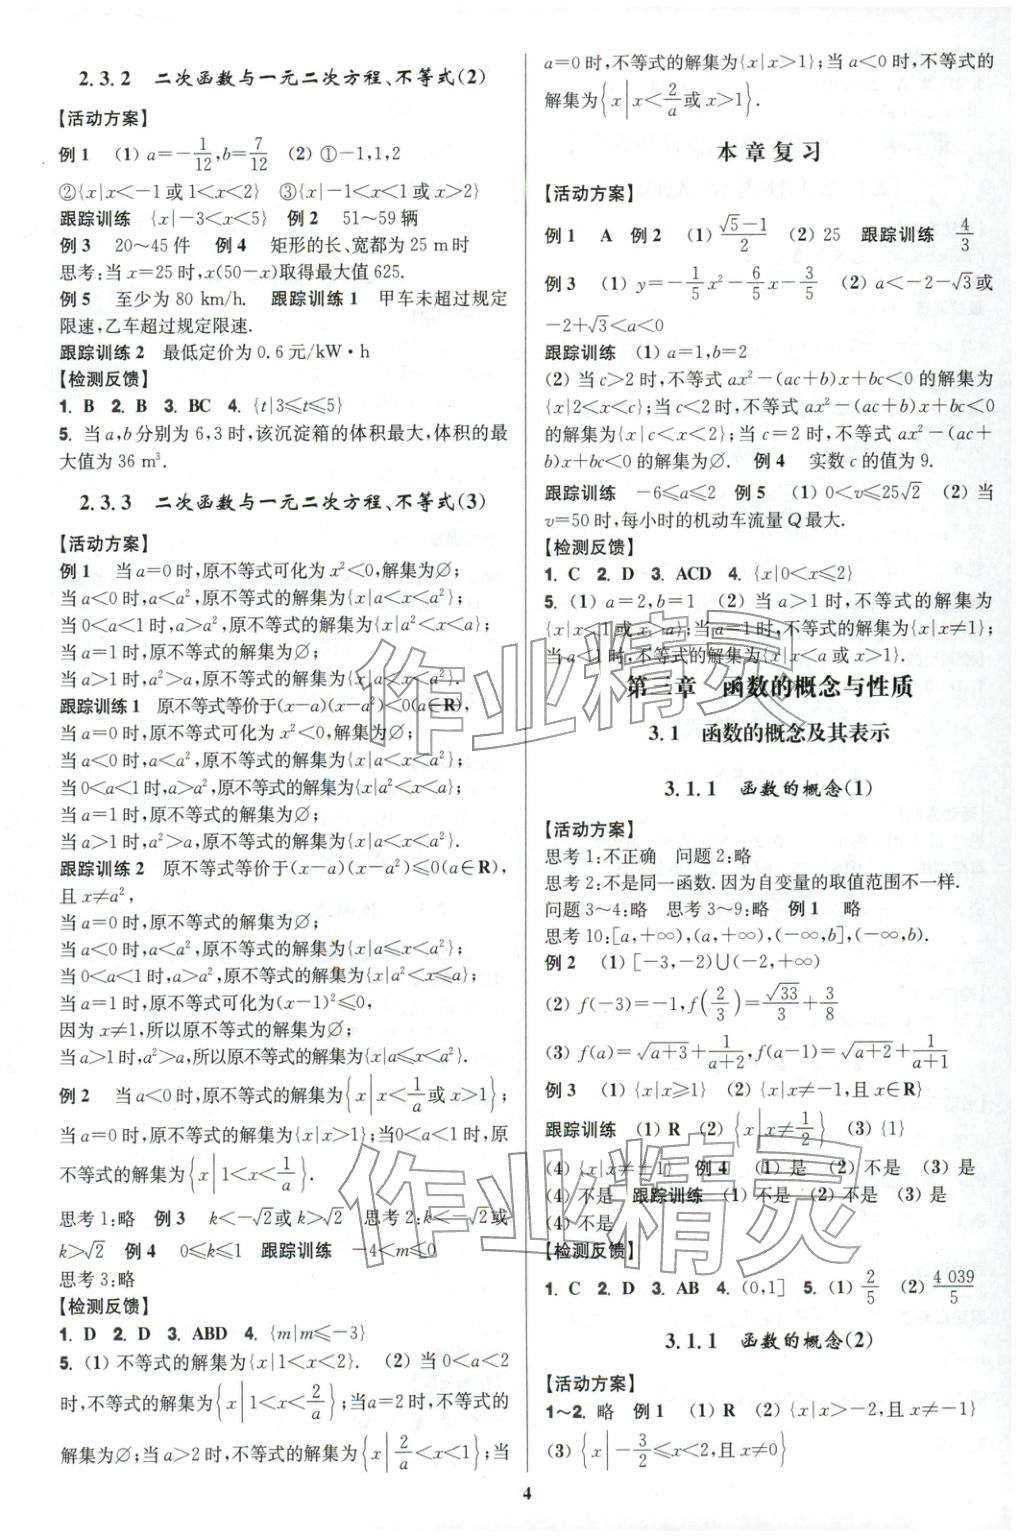 2.3.2 二次函数与一元二次方程、不等式(2)
【活动方案】
例1 (1) a=-1/12,b=7/12 (2) ①-1,1,2
②{x|x<-1或1<x<2} ③{x|-1<x<1或x>2}
跟踪训练 {x|-3<x<5} 例2 51～59辆
例3 20～45件 例4 矩形的长、宽都为25 m时
思考:当x=25时,x(50-x)取得最大值625.
例5 至少为80 km/h. 跟踪训练1 甲车未超过规定
限速,乙车超过规定限速.
跟踪训练2 最低定价为0.6元/kW·h
【检测反馈】
1. B 2. B 3. BC 4. {t|3≤t≤5}
5. 当a,b分别为6,3时,该沉淀箱的体积最大,体积的最
大值为36 m³.
2.3.3 二次函数与一元二次方程、不等式(3)
【活动方案】
例1 当a=0时,原不等式可化为x²<0,解集为∅;
当a<0时,a<a²,原不等式的解集为{x|a<x<a²};
当0<a<1时,a>a²,原不等式的解集为{x|a²<x<a};
当a=1时,原不等式的解集为∅;
当a>1时,a²>a,原不等式的解集为{x|a<x<a²}.
跟踪训练1 原不等式等价于(x-a)(x-a²)<0(a∈R),
当a=0时,原不等式可化为x²<0,解集为∅;
当a<0时,a<a²,原不等式的解集为{x|a<x<a²};
当0<a<1时,a>a²,原不等式的解集为{x|a²<x<a};
当a=1时,原不等式的解集为∅;
当a>1时,a²>a,原不等式的解集为{x|a<x<a²}.
跟踪训练2 原不等式等价于(x-a)(x-a²)≤0(a∈R),
且x≠a²,
当a=0时,原不等式的解集为∅;
当a<0时,a<a²,原不等式的解集为{x|a≤x<a²};
当0<a<1时,a>a²,原不等式的解集为{x|a²<x≤a};
当a=1时,原不等式可化为(x-1)²≤0,
因为x≠1,所以原不等式的解集为∅;
当a>1时,a²>a,所以原不等式的解集为{x|a≤x<a²}.
例2 当a<0时,原不等式的解集为{x|x<1/a或x>1};
当a=0时,原不等式的解集为{x|x>1};当0<a<1时,原
不等式的解集为{x|1<x<1/a}.
思考1:略 例3 k<-√2或k>√2 思考2:k<-√2或
k>√2 例4 0≤k≤1 跟踪训练 -4<m≤0
思考3:略
【检测反馈】
1. D 2. D 3. ABD 4. {m|m≤-3}
5. (1) 不等式的解集为{x|1<x<2}. (2) 当0<a<2
时,不等式的解集为{x|1<x<2/a};当a=2时,不等式的
解集为∅;当a>2时,不等式的解集为{x|2/a<x<1};当
a=0时,不等式的解集为{x|x>1};当a<0时,不等式的
解集为{x|x<2/a或x>1}.
本章复习
【活动方案】
例1 A 例2 (1) (√5-1)/2 (2) 25 跟踪训练 4/3
例3 (1) y=-1/5x²-6/5x-3/5 (2) a<-2-√3或
-2+√3<a<0
跟踪训练 (1) a=1,b=2
(2) 当c>2时,不等式ax²-(ac+b)x+bc<0的解集为
{x|2<x<c};当c<2时,不等式ax²-(ac+b)x+bc<0
的解集为{x|c<x<2};当c=2时,不等式ax²-(ac+
b)x+bc<0的解集为∅. 例4 实数c的值为9.
跟踪训练 -6≤a≤2 例5 (1) 0<v≤25√2 (2) 当
v=50时,每小时的机动车流量Q最大.
【检测反馈】
1. C 2. D 3. ACD 4. {x|0<x≤2}
5. (1) a=2,b=1 (2) 当a>1时,不等式的解集为
{x|x<1或x>a};当a=1时,不等式的解集为{x|x≠1};
当a<1时,不等式的解集为{x|x<a或x>1}.
第三章 函数的概念与性质
3.1 函数的概念及其表示
3.1.1 函数的概念(1)
【活动方案】
思考1:不正确 问题2:略
思考2:不是同一函数.因为自变量的取值范围不一样.
问题3～4:略 思考3～9:略 例1 略
思考10:[a,+∞),(a,+∞),(-∞,b],(-∞,b).
例2 (1) [-3,-2)∪(-2,+∞)
(2) f(-3)=-1,f(2/3)=√33/3+3/8
(3) f(a)=√(a+3)+1/(a+2),f(a-1)=√(a+2)+1/(a+1)
例3 (1) {x|x≥1} (2) {x|x≠-1,且x∈R}
跟踪训练 (1) R (2) {x|x≠1/2} (3) {1}
(4) {x|x≠-1} 例4 (1) 是 (2) 不是 (3) 是
(4) 不是 跟踪训练 (1) 不是 (2) 不是 (3) 是
(4) 不是
【检测反馈】
1. C 2. D 3. AB 4. (0,1] 5. (1) 2/5 (2) 4 039/5
3.1.1 函数的概念(2)
【活动方案】
1～2. 略 例1 (1) R (2) {x|x>-2,且x≠-1}
(3) {x|-3/2≤x<2,且x≠0}
4
作业精灵
作业精灵